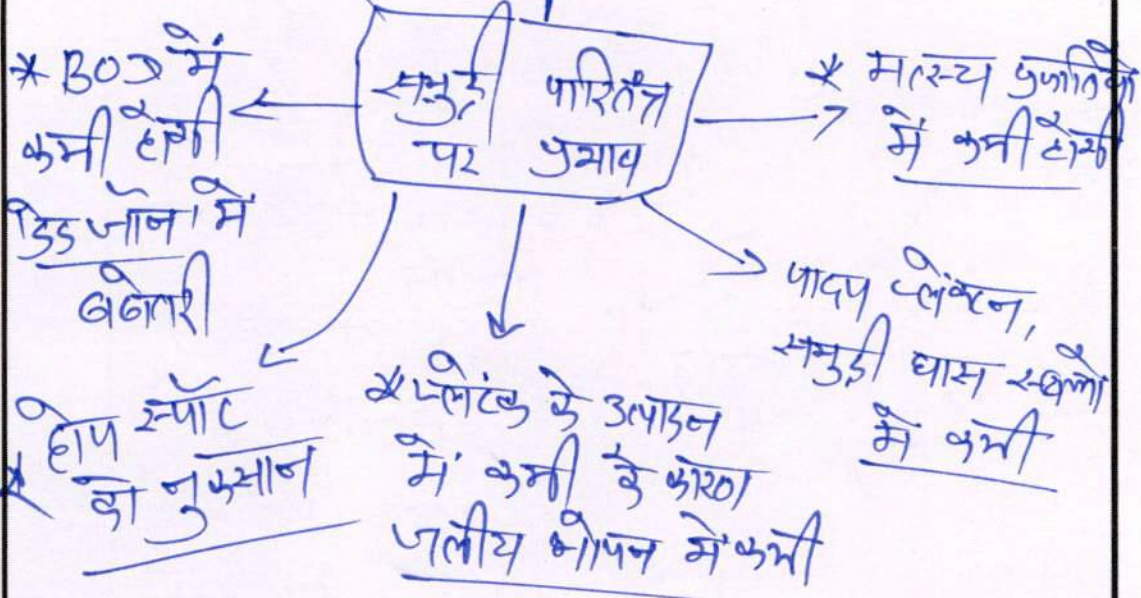 समुद्री पारितंत्र
पर प्रभाव
* BOD में
कमी होगी
डेड जोन में
बढोतरी
* मत्स्य प्रजातियो
में कमी होगी
पादप प्लेंक्टन,
समुद्री घास स्थलो
में कमी
* होप स्पॉट
को नुकसान
* प्लेंटक के उत्पादन
में कमी के कारण
जलीय भोजन में कमी